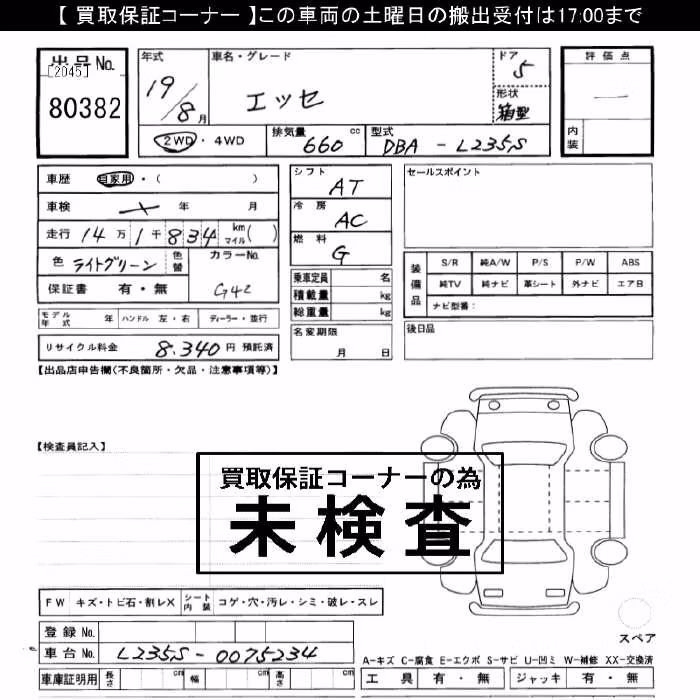 【 買取保証コーナー 】この車両の土曜日の搬出受付は17:00まで
出品No.
[2045]
80382
年式
19/8月
車名・グレード
エッセ
ドア
5
形状
箱型
評価点
—
内装
2WD・4WD
排気量 660 cc
型式 DBA - L235S
車歴 自家用・( )
車検 年 月
走行 14万1千834 km マイル( )
色 ライトグリーン 色替
カラーNo. G42
保証書 有・無
モデル年式 年 ハンドル 左・右 ディーラー・並行
リサイクル料金 8,340円 預託済
シフト AT
冷房 AC
燃料 G
乗車定員 名
積載量 kg
総重量 kg
名変期限
月 日
セールスポイント
装備品
S/R 純A/W P/S P/W ABS
純TV 純ナビ 革シート 外ナビ エアB
ナビ型番:
後日品
【出品店申告欄(不良箇所・欠品・注意事項等)】
【検査員記入】
買取保証コーナーの為
未検査
FW キズ・トビ石・割レX シート内装 コゲ・穴・汚レ・シミ・破レ・スレ
登録No.
車台No. L235S-0075234
車庫証明用 長さ cm 幅 cm 高さ cm
スペア
A-キズ C-腐食 E-エクボ S-サビ U-凹ミ W-補修 XX-交換済
工具 有・無 ジャッキ 有・無